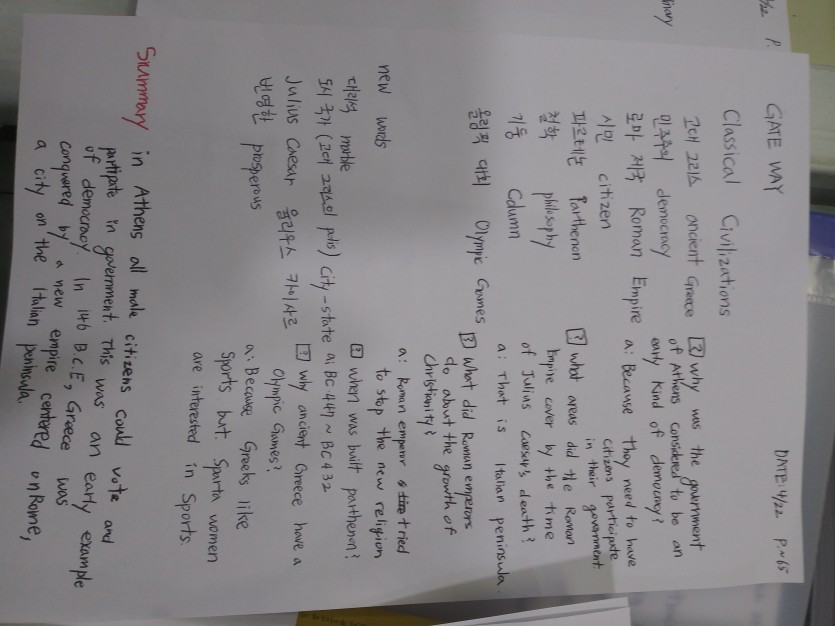 GATE WAY
DATE: 4/22 P.~65
Classical Civilizations
고대 그리스 ancient Greece
민주주의 democracy
로마 제국 Roman Empire
시민 citizen
파르테논 Parthenon
철학 philosophy
기둥 Column
올림픽 대회 Olympic Games
new words
대리석 marble
도시 국가 (고대 그리스의 polis) City-state
Julius Caesar 율리우스 카이사르
번영한 prosperous
? why was the government
of Athens considered to be an
early kind of democracy?
a: Because they need to have
citizens participate
in their government.
? what areas did the Roman
Empire cover by the time
of Julius Caesar's death?
a: That is Italian peninsula.
? What did Roman emperors
do about the growth of
Christianity?
a: Roman emperor tried
to stop the new religion
? when was built parthenon?
a: BC 447 ~ BC 432
? why ancient Greece have a
Olympic Games?
a: Because Greeks like
Sports but. Sparta women
are interested in Sports.
Summary in Athens all male citizens could vote and
partipate in government. This was an early example
of democracy. In 146 B.C.E, Greece was
conquered by a new empire centered on Rome,
a city on the Italian peninsula.
4/22 P.